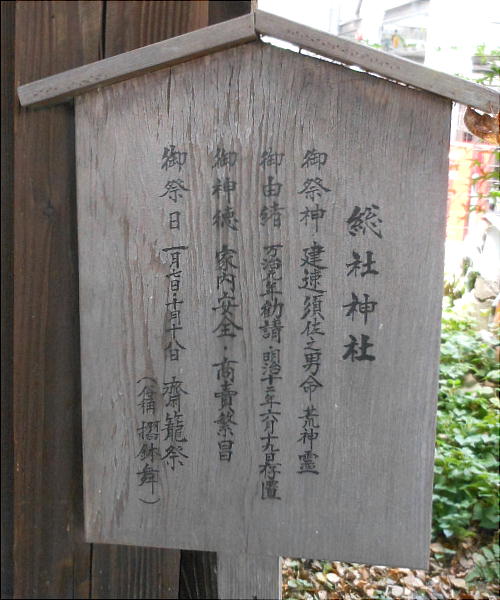 総社神社
御祭神 建速須佐之男命 荒神霊
御由緒 万治元年勧請・明治十二年六月十九日存置
御神徳 家内安全・商売繁昌
御祭日 一月七日・十月十八日 齋籠祭
（俗称 摺鉢舞）